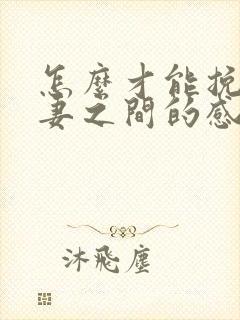 怎麼才能挽
妻之間的感
沐飛塵